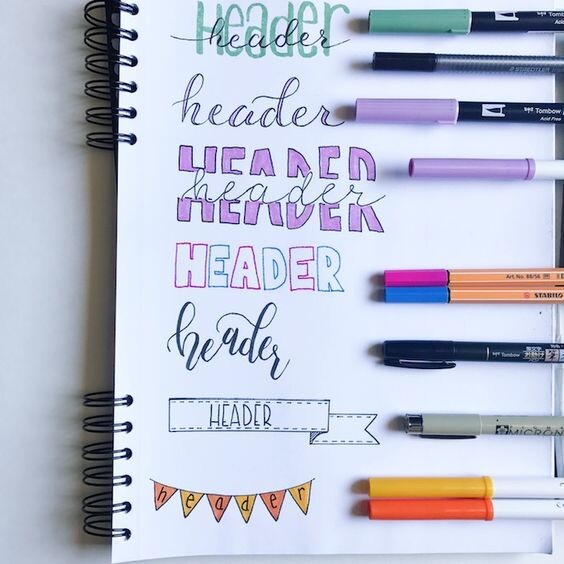 Header
header
Tombow
STAEDTLER
header
Tombow
Acid Free
HEADER
header
HEADER
Art. No. 88/56
STABILO
header
Tombow
HEADER
MICRON
header